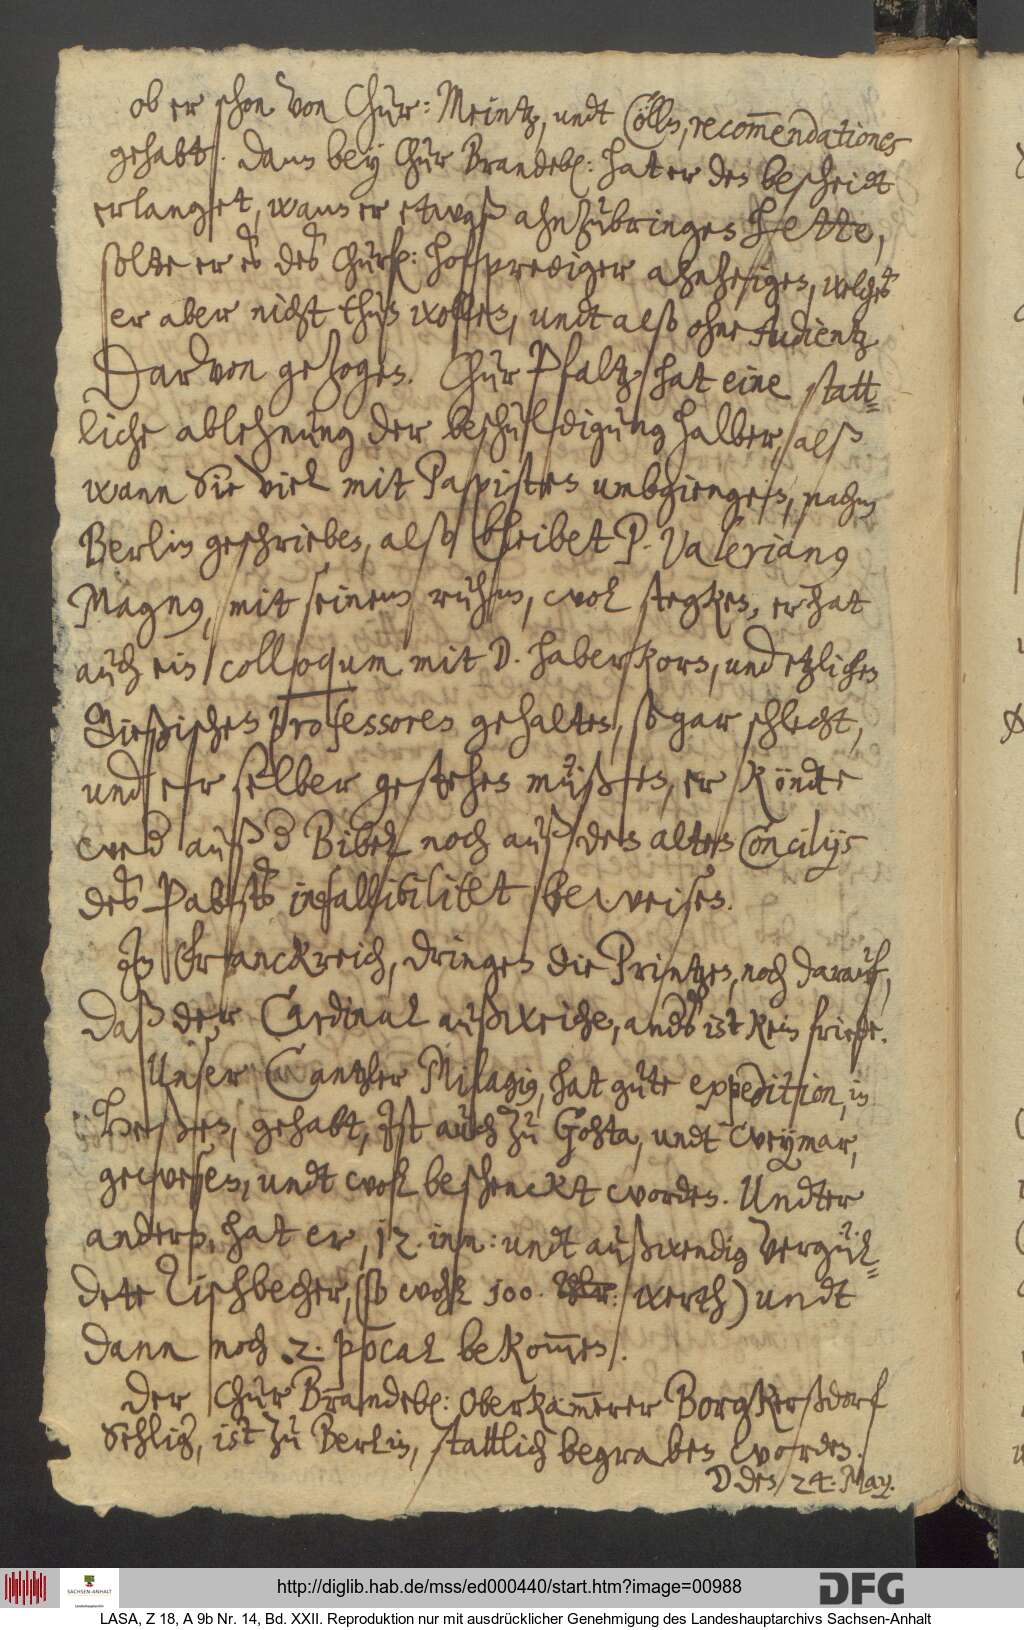 ob er schon von Chur: Meintz, undt Cölln, recom̄endationes
gehabt. Dann bey Chur Brandeb: hat er den bescheidt
erlanget, wann er etwaß ahnzubringen hette,
solte er es des Churf: hoffprediger ahnzeigen, welches
er aber nicht thun wollen, undt also ohne Audientz
Darvon gezogen. Chur Pfaltz hat eine statt=
liche ablehnung der beschuldigung halber, alß
wann Sie viel mit Papisten umbgiengen, nacher
Berlin geschrieben, also bleibet P. Valerianus
Magnus, mit seinem ruhm, wol stegken, er hat
auch ein colloquum mit D. Haberkorn, und etzlichen
Gießischen professoren gehalten, so gar schlecht,
und er selber gestehen müßen, er köndte
wed auß d Bibel noch auß den alten Concilijs
des Pabsts infallibilitet beweisen.
In Franckreich, dringen die Printzen, noch darauf,
Daß der Cardinal außweiche, ands ist kein friede.
Unser Cantzler Milagius, hat gute expedition, in
Heßen, gehabt, Ist auch zu Gohta, undt Weymar,
gewesen, undt wol beschenckt worden. Undter
anderm, hat er, 12. inn: undt außwendig vergül=
dete Tischbecher, (so wohl 100. Thlr: werth) undt
dann noch .2. pocal bekom̄en.
Der Chur Brandeb: Oberkam̄erer Borgkerßdorf
Sehlig, ist zu Berlin, stattlich begraben worden.
D den 24. May.
http://diglib.hab.de/mss/ed000440/start.htm?image=00988
SACHSEN-ANHALT
DFG
LASA, Z 18, A 9b Nr. 14, Bd. XXII. Reproduktion nur mit ausdrücklicher Genehmigung des Landeshauptarchivs Sachsen-Anhalt